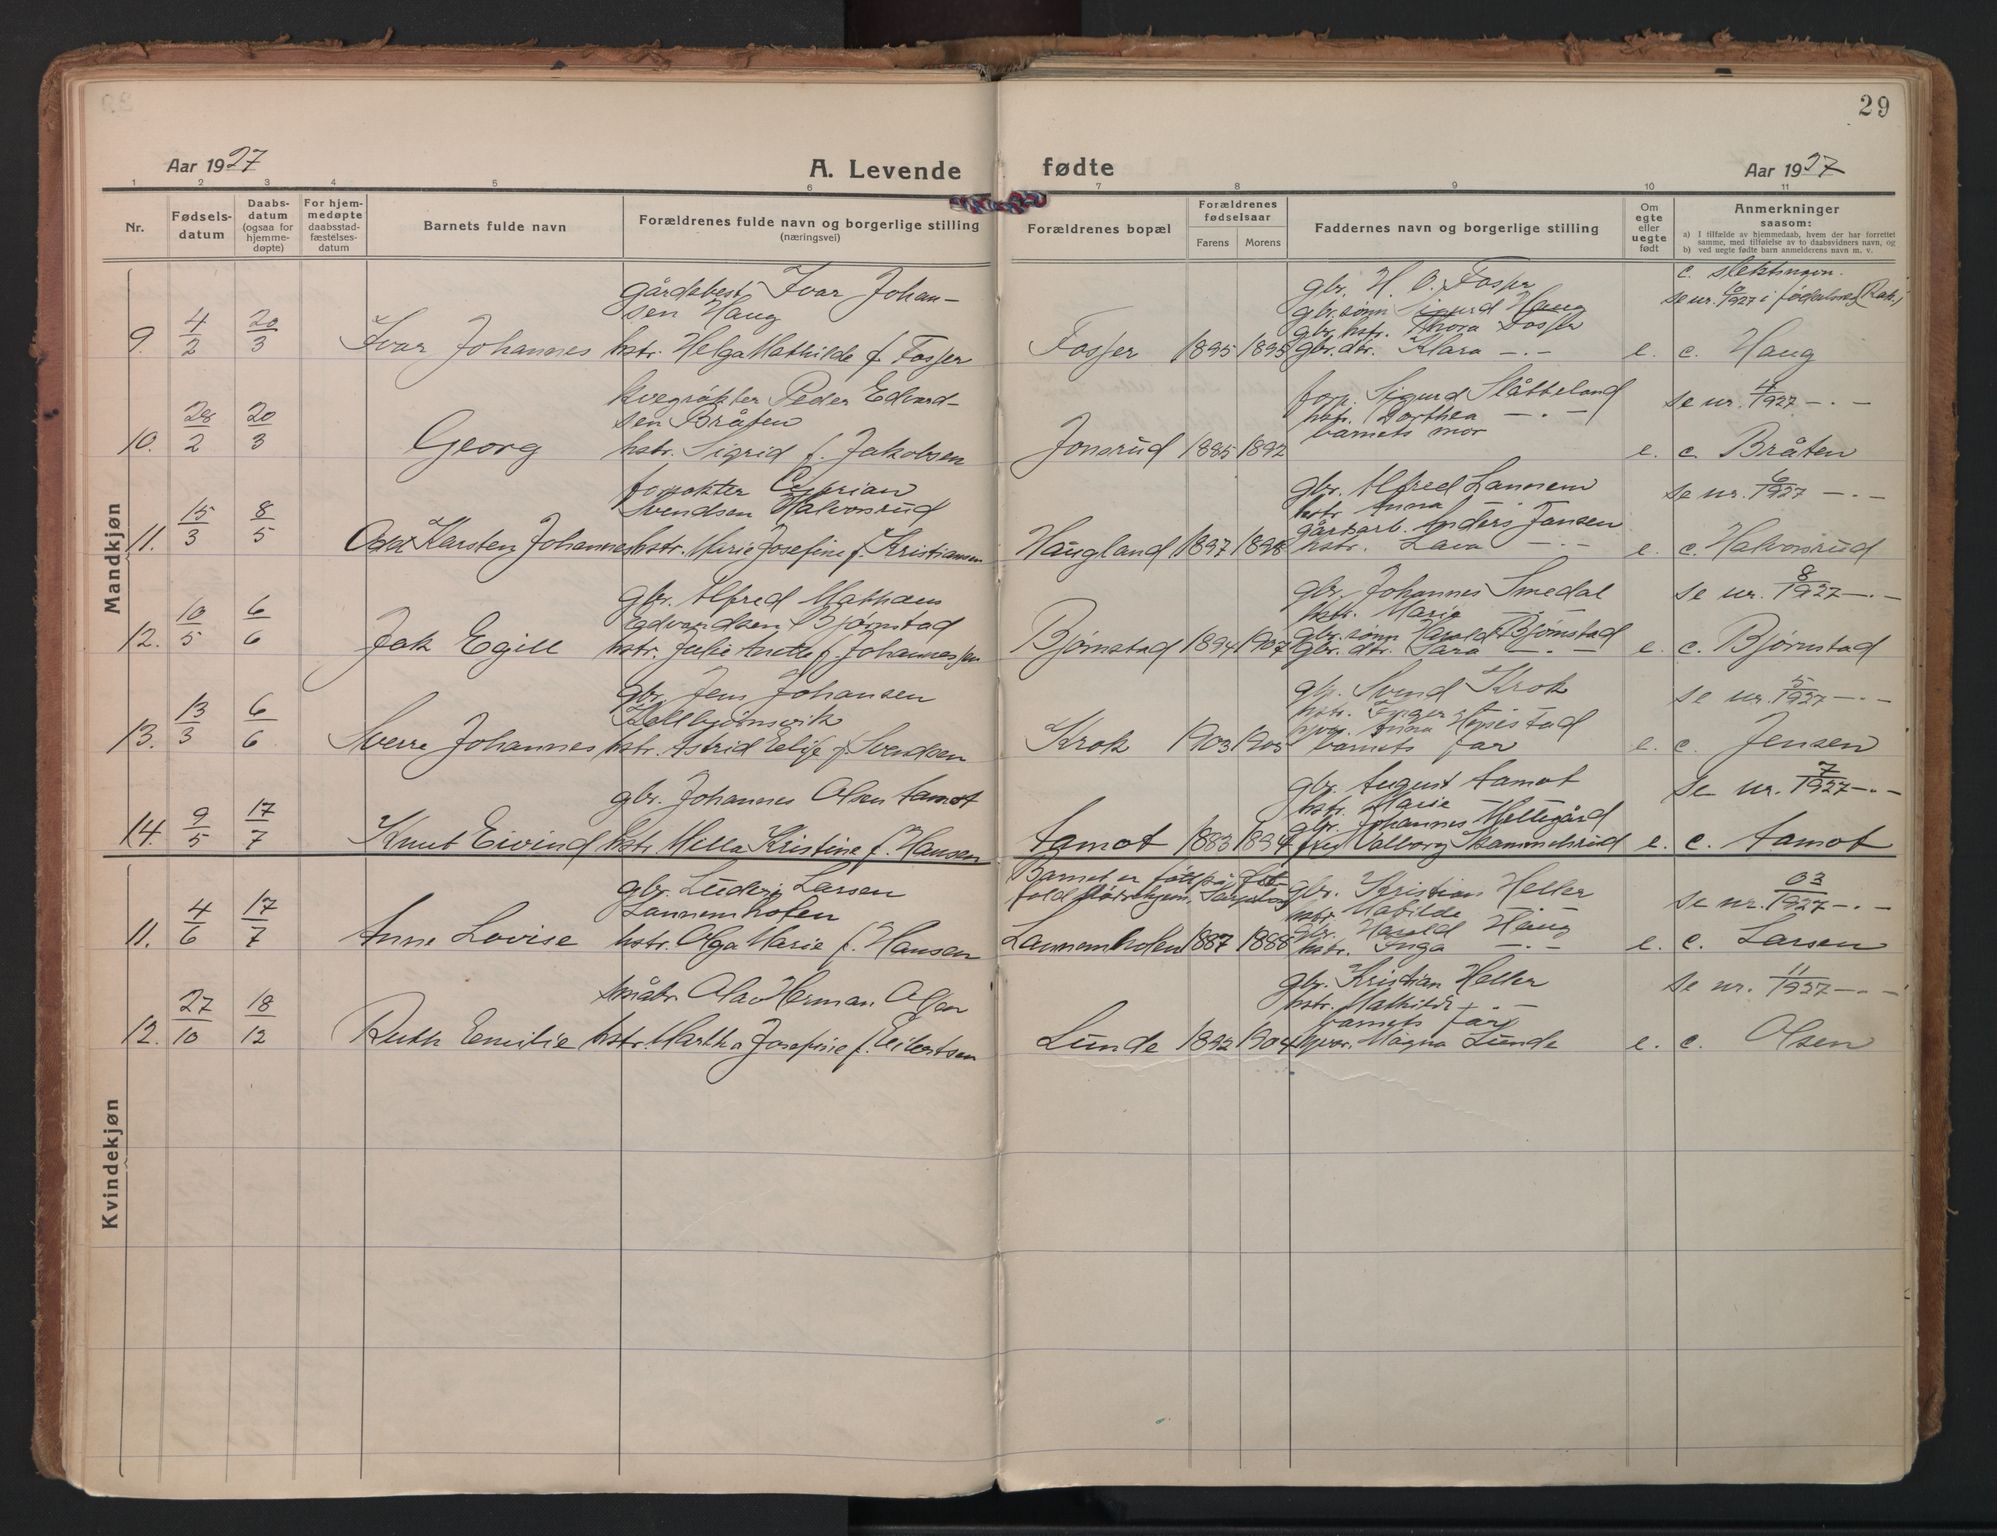 29
Aar 1927
A. Levende
fødte
Aar 1927
1 2 3 4 5 6 7 8 9 10 11
Nr.
Fødsels-
datum
Daabs-
datum
(ogsaa for
hjemme-
døpte)
For hjem-
medøpte
daabsstad-
fæstelses-
datum
Barnets fulde navn
Forældrenes fulde navn og borgerlige stilling
(næringsvei)
Forældrenes bopæl
Forældrenes
fødselsaar
Farens
Morens
Faddernes navn og borgerlige stilling
Om
egte
eller
uegte
født
Anmerkninger
saasom:
a) I tilfælde av hjemmedaab, hvem der har forrettet
samme, med tilføielse av to daabsvidners navn, og
b) ved uegte fødte barn anmelderens navn m. v.
Mandkjøn
9. 4/2 20/3 Ivar Johannes
gårdsbest. Ivar Johan-
sen Haug
hstr. Helga Mathilde f. Fosser
Fosser 1895 1895
gbr. H. O. Fosser
gbr. sønn Sigurd Haug
gbr. hstr. Thora Fosser
gbr. dtr. Klara —.—
e.
c. slektsnavn.
se nr. 6/1927 i fødselsreg. (Rak.)
c. Haug
10. 28/2 20/3 Georg
kvegrøkter Peder Edvard-
sen Bråten
hstr. Sigrid f. Jakobsen
Jonsrud 1885 1892
forp. Sigurd Slåtteland
hstr. Dorthea —.—
barnets mor
e.
se nr. 4/1927 —.—
c. Bråten
11. 15/3 8/5 Karsten Johannes
Cyprian
Svendsen Halvorsrud
hstr. Marie Josefine f. Kristiansen
Haugland 1897 1898
gbr. Alfred Lannem
hstr. Anna
gårdsarb. Anders Jansen
hstr. Lava —.—
e.
se nr. 6/1927 —.—
c. Halvorsrud
12. 10/5 6/6 Jak Egill
gbr. Alfred Mathæus
Edvardsen Bjørnstad
hstr. Julie Anette f. Johannessen
Bjørnstad 1894 1907
gbr. Johannes Smedal
hstr. Marie —.—
gbr. sønn Harald Bjørnstad
gbr. dtr. Sara —.—
e.
se nr. 8/1927 —.—
c. Bjørnstad
13. 13/3 6/6 Sverre Johannes
gbr. Jens Johansen
hstr. Astrid Elise f. Svendsen
Krok 1903 1905
gbr. Svend Krok
hstr. Inger
Anna
barnets far
e.
se nr. 5/1927 —.—
c. Jensen
14. 9/5 17/7 Knut Eivind
gbr. Johannes Olsen Aamot
hstr. Milla Kristine f. Hansen
Aamot 1883 1894
gbr. August Aamot
hstr. Marie
gbr. Johannes Mellegård
frk. Valborg
e.
se nr. 7/1927 —.—
c. Aamot
Kvindekjøn
11. 4/6 17/7 Anne Lovise
gbr. Ludvig Larsen
Lannemholen
hstr. Olga Marie f. Hansen
Barnet er født på Øst-
fold fødselshjem, Sarpsborg
Lannemholen 1887 1888
gbr. Kristian Heller
hstr. Matilde
gbr. Harald Haug
hstr. Inga —.—
e.
se nr. 03/1927 —.—
c. Larsen
12. 27/10 18/12 Ruth Emilie
småbr. Olav Herman Olsen
hstr. Martha Josefine f. Eilertsen
Lunde 1892 1904
gbr. Kristian Heller
hstr. Mathilde —.—
barnets far
Magna Lunde
e.
se nr. 11/1927 —.—
c. Olsen